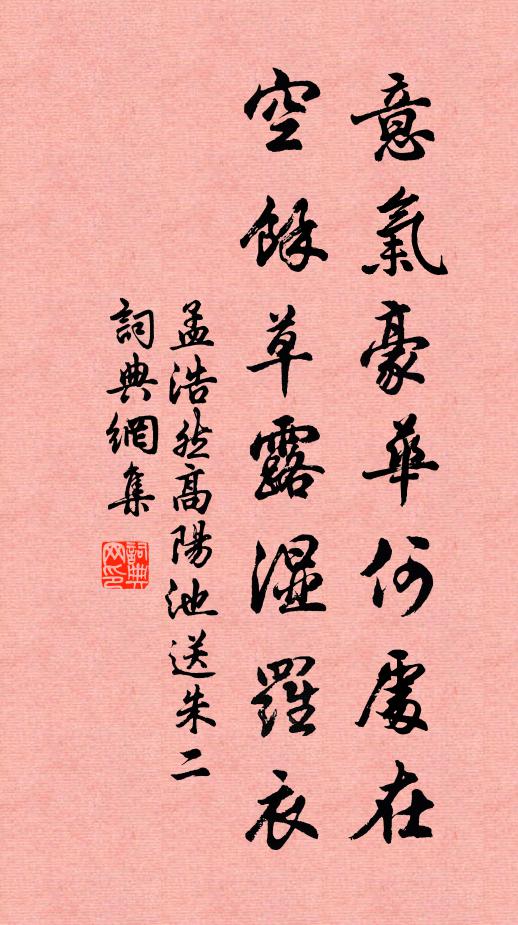 意氣豪華何處在
空餘草露濕羅衣
孟浩然高陽池送朱二
詞典網集
詞典網印